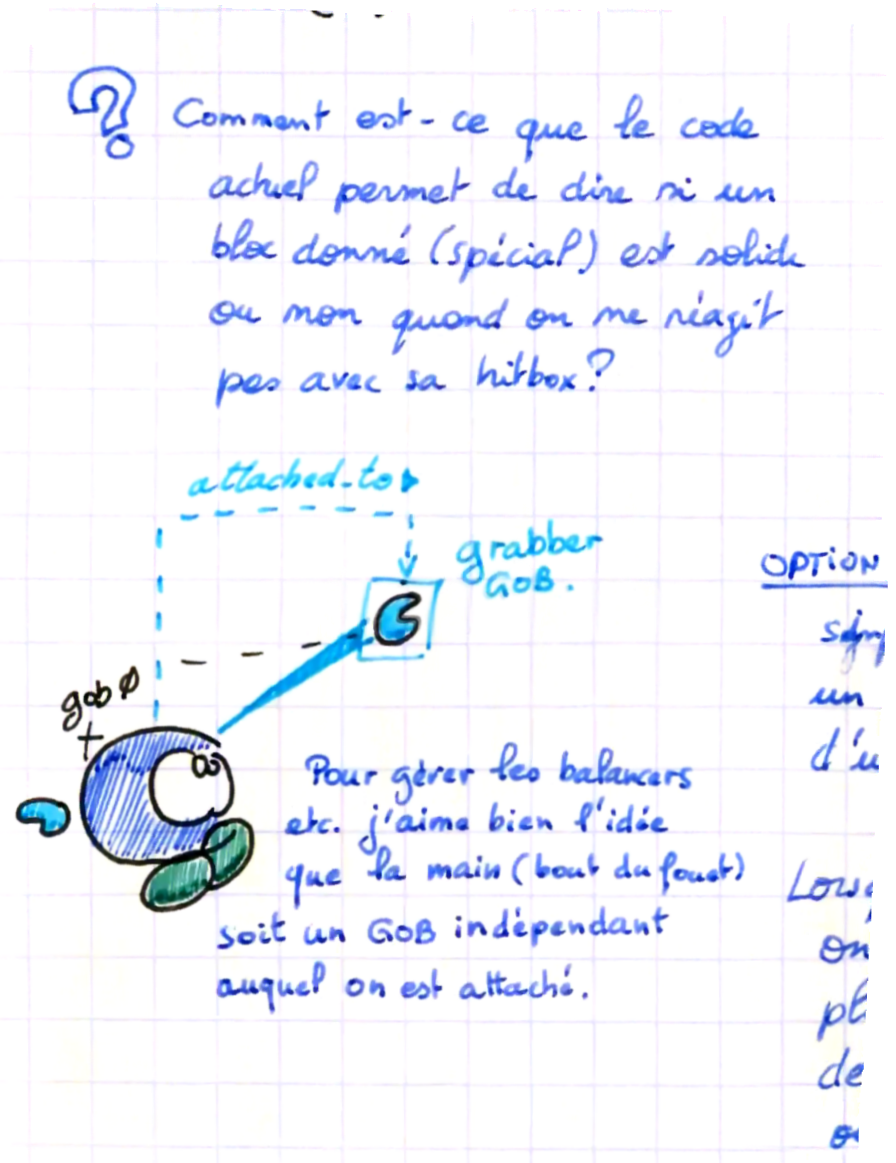 Comment est-ce que le code
actuel permet de dire si un
bloc donné (spécial) est solide
ou non quand on ne réagit
pas avec sa hitbox?
attached-to
grabber
GOB.
gob ø
Pour gérer les balancers
etc. j'aime bien l'idée
que la main (bout du fouet)
soit un GOB indépendant
auquel on est attaché.
OPTION
un
d'u
on
pl
de